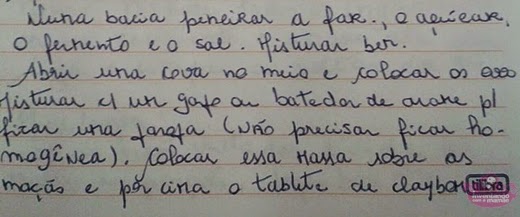 Numa bacia peneirar a far., o açúcar,
o fermento e o sal. Misturar bem.
Abrir uma cova no meio e colocar os
Misturar c/ um garfo ou batedor de arame p/
ficar uma farofa (NÃO precisar ficar ho-
mogênea). Colocar essa massa sobre as
maçãs e por cima o tablete de claybon